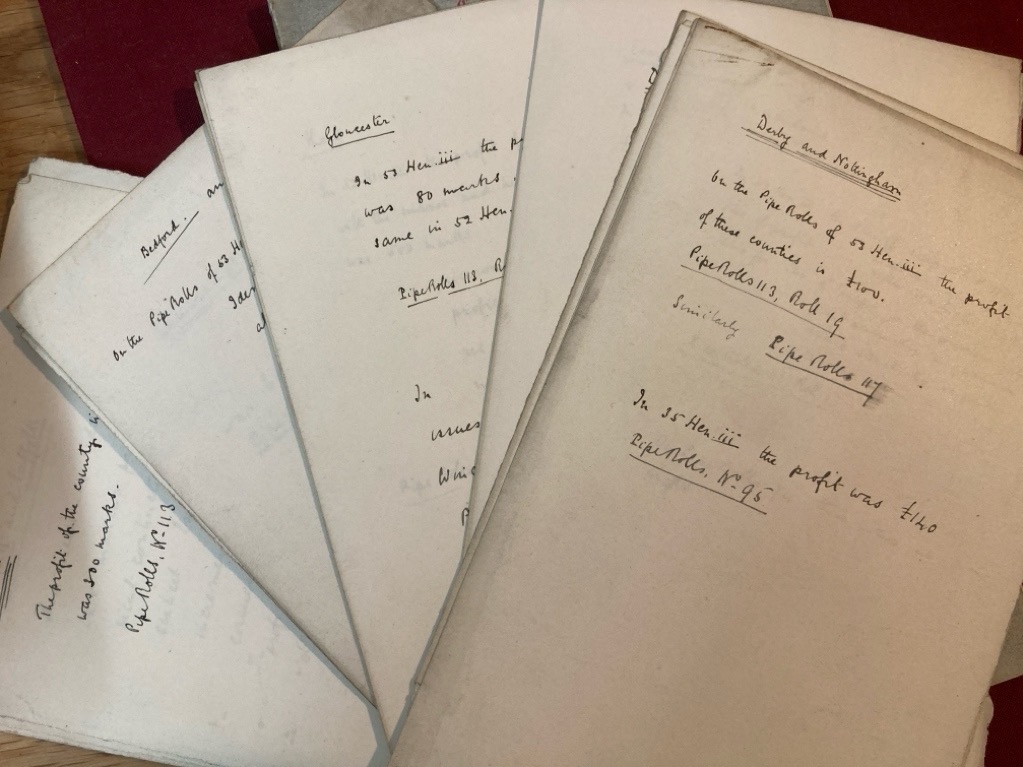 The profit of the county
was 200 marks.
Pipe Rolls, No 113
Bedford. an
On the Pipe Rolls of 53 H
Gloucester
In 53 Hen. iii the p
was 80 marks.
same in 52 Hen.
Pipe Rolls 113, R
In
issues
Derby and Nottingham
On the Pipe Rolls of 53 Hen. iii the profit
of these counties is £100.
Pipe Rolls 113, Roll 19
Similarly Pipe Rolls 117
In 35 Hen. iii the profit was £140
Pipe Rolls, No 95